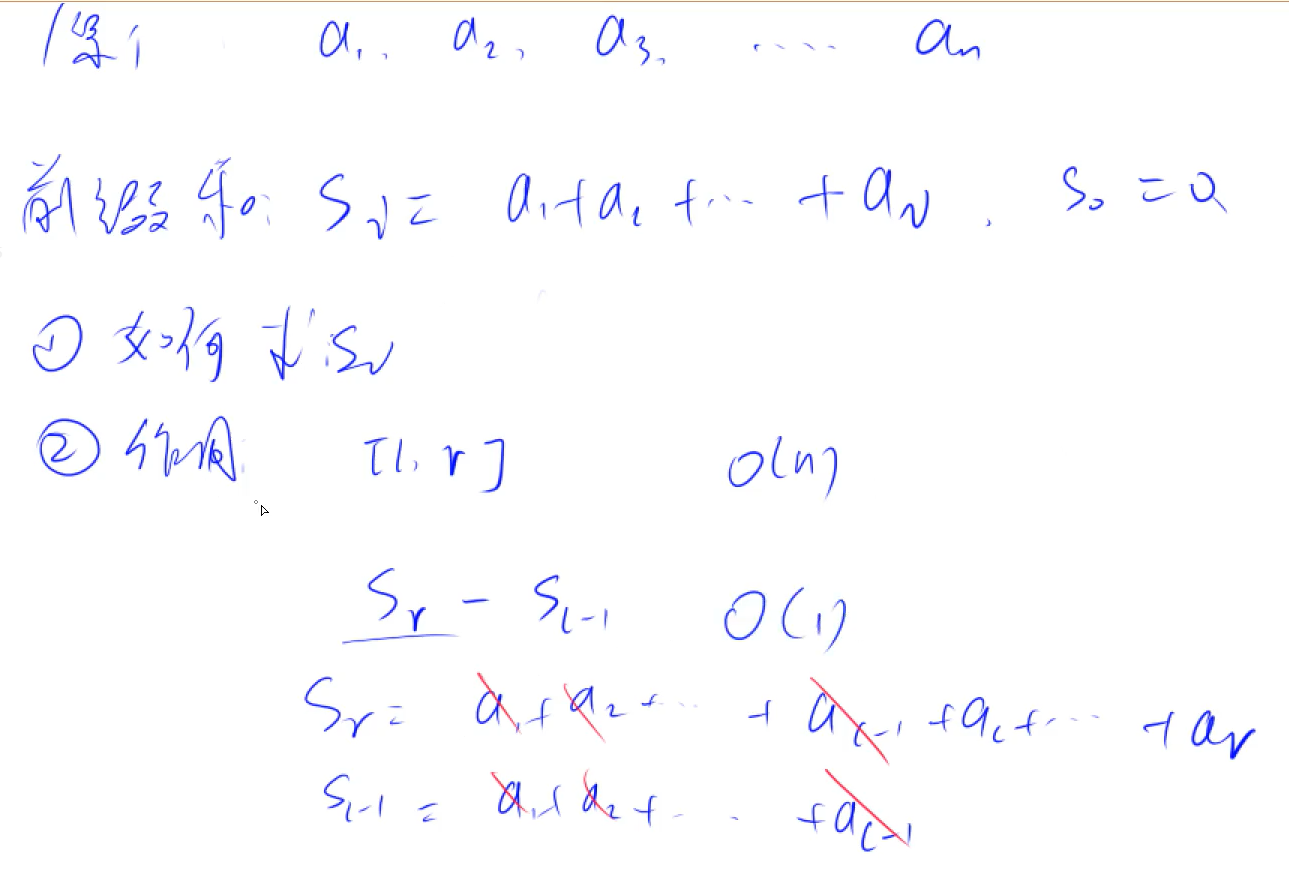 a₁, a₂, a₃, ····· aₙ
前缀和: Sᵢ = a₁+a₂ +··· + aᵢ . S₀ = 0
① 如何求Sᵢ
② 作用: [l, r] O(n)
Sᵣ - Sₗ₋₁ O(1)
Sᵣ = a₁ + a₂ + ··· + aₗ₋₁ + aₗ + ··· + aᵣ
Sₗ₋₁ = a₁ + a₂ + ··· + aₗ₋₁